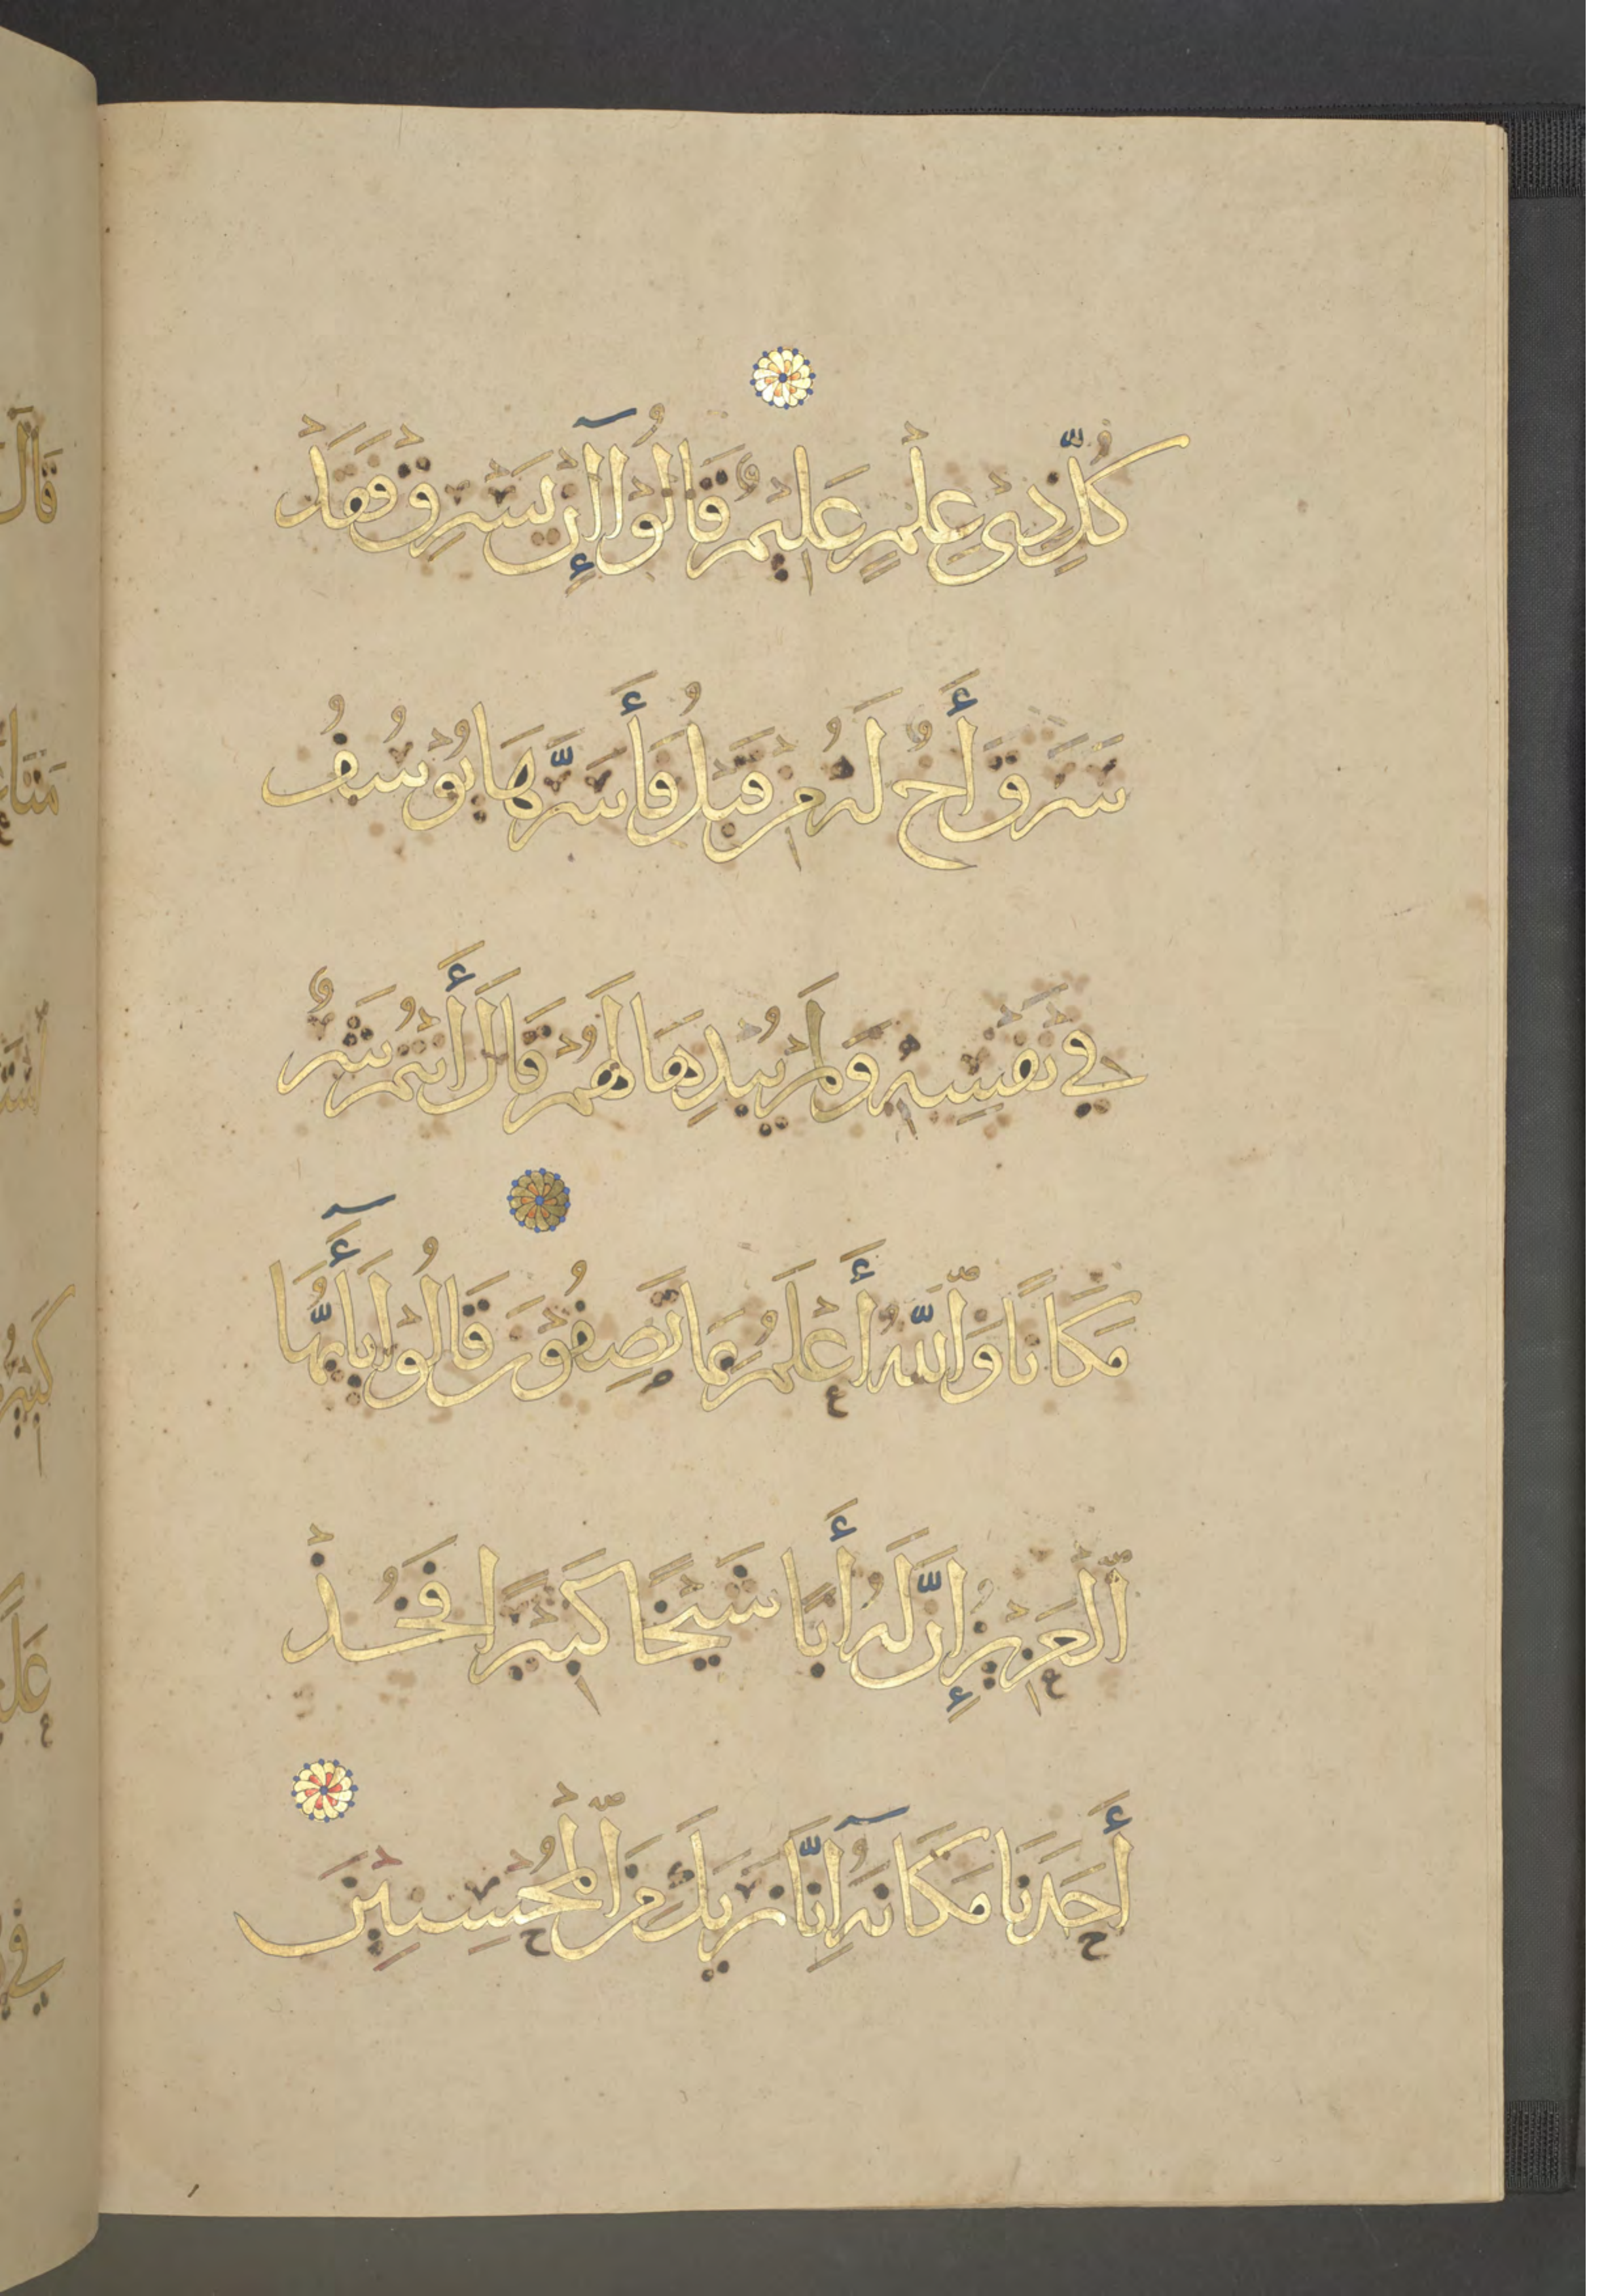 كُلِّ ذِي عِلْمٍ عَلِيمٌ قَالُوٓا إِنْ يَسْرِقْ فَقَدْ
سَرَقَ أَخٌ لَهُ مِنْ قَبْلُ فَأَسَرَّهَا يُوسُفُ
فِي نَفْسِهِ وَلَمْ يُبْدِهَا لَهُمْ قَالَ أَنْتُمْ شَرٌّ
مَكَانًا وَاللَّهُ أَعْلَمُ بِمَا تَصِفُونَ قَالُوا يَآ أَيُّهَا
الْعَزِيزُ إِنَّ لَهُ أَبًا شَيْخًا كَبِيرًا فَخُذْ
أَحَدَنَا مَكَانَهُ إِنَّا نَرَيكَ مِنَ الْمُحْسِنِينَ